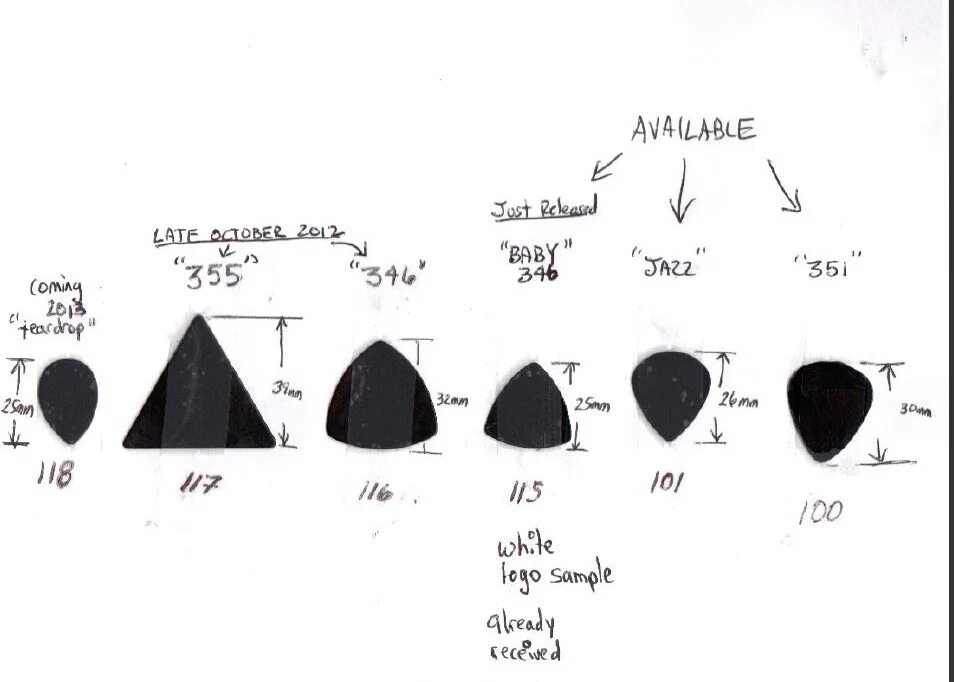 AVAILABLE
Just Released
LATE OCTOBER 2012
"BABY"
346
"JAZZ"
"351"
"355"
"346"
coming
2013
"teardrop"
25mm
39mm
32mm
25mm
26mm
30mm
118
117
116
115
101
100
white
logo sample
already
received